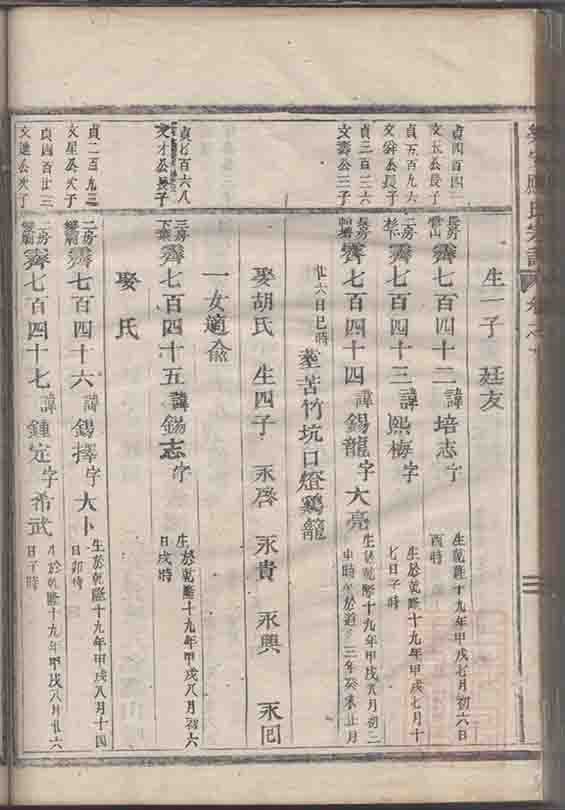 生一子 廷友
貞四百四二
文玉公長子
長房
霽七百四十二 諱培志 字 生於乾隆十九年甲戌七月初六日
酉時
貞五百九六
文舜公長子
二房
霽七百四十三 諱熙梅 字 生於乾隆十九年甲戌七月十
七日子時
貞三百三六
文壽公三子
長房
霽七百四十四 諱錫龍 字大亮 生於乾隆十九年甲戌八月初二
申時 於道 三年癸未
廿六日巳時 塟苦竹坑口燈鷄籠
娶胡氏 生四子 永啓 永貴 永興 永囘
一女適俞
貞七百六八
文才公長子
三房
下葉
霽七百四十五 諱錫志 字 生於乾隆十九年甲戌八月初六
日戌時
娶 氏
貞二百九三
文星公次子
二房
霽七百四十六 諱錫擇 字大卜 生於乾隆十九年甲戌八月十四
日卯時
貞四百廿三
文進公次子
二房
霽七百四十七 諱鍾定 字希武 生於乾隆十九年甲戌八月廿六
日子時